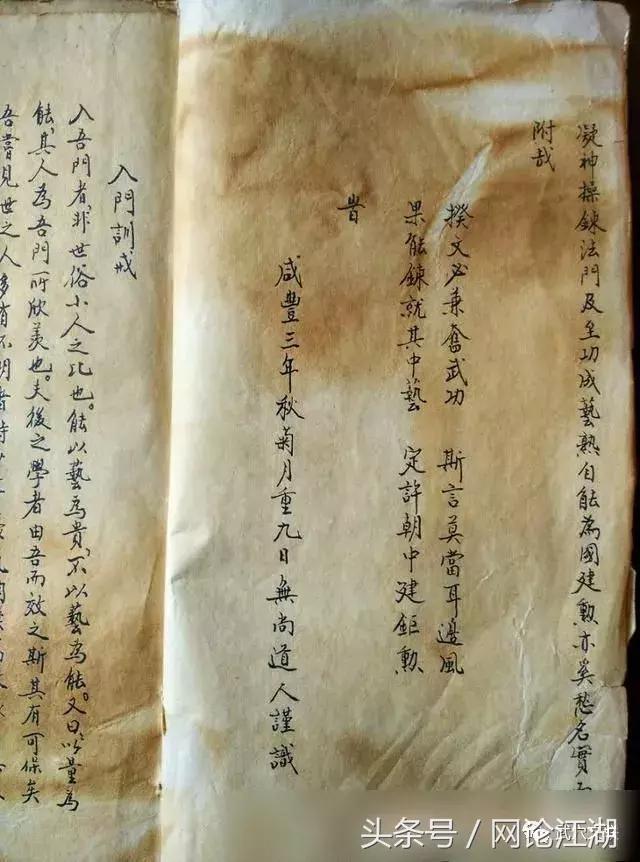 凝神操鍊法門及至功成藝熟自能為國建勳亦奚愁名實
附哉
揆文必兼奮武功 斯言莫當耳邊風
果能鍊就其中藝 定許朝中建鉅勲
旹
咸豐三年秋菊月重九日無尚道人謹識
入門訓戒
入吾門者,非世俗小人之比也。能以藝為貴,不以藝為能。又曰以量為
能,其人為吾門所欣羡也。夫後之學者由吾而效之斯其有可保矣
吾嘗見世之人多有不明者
头条号 / 网论江湖